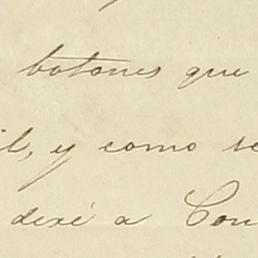 botones que
il, y como se
dexé a Con